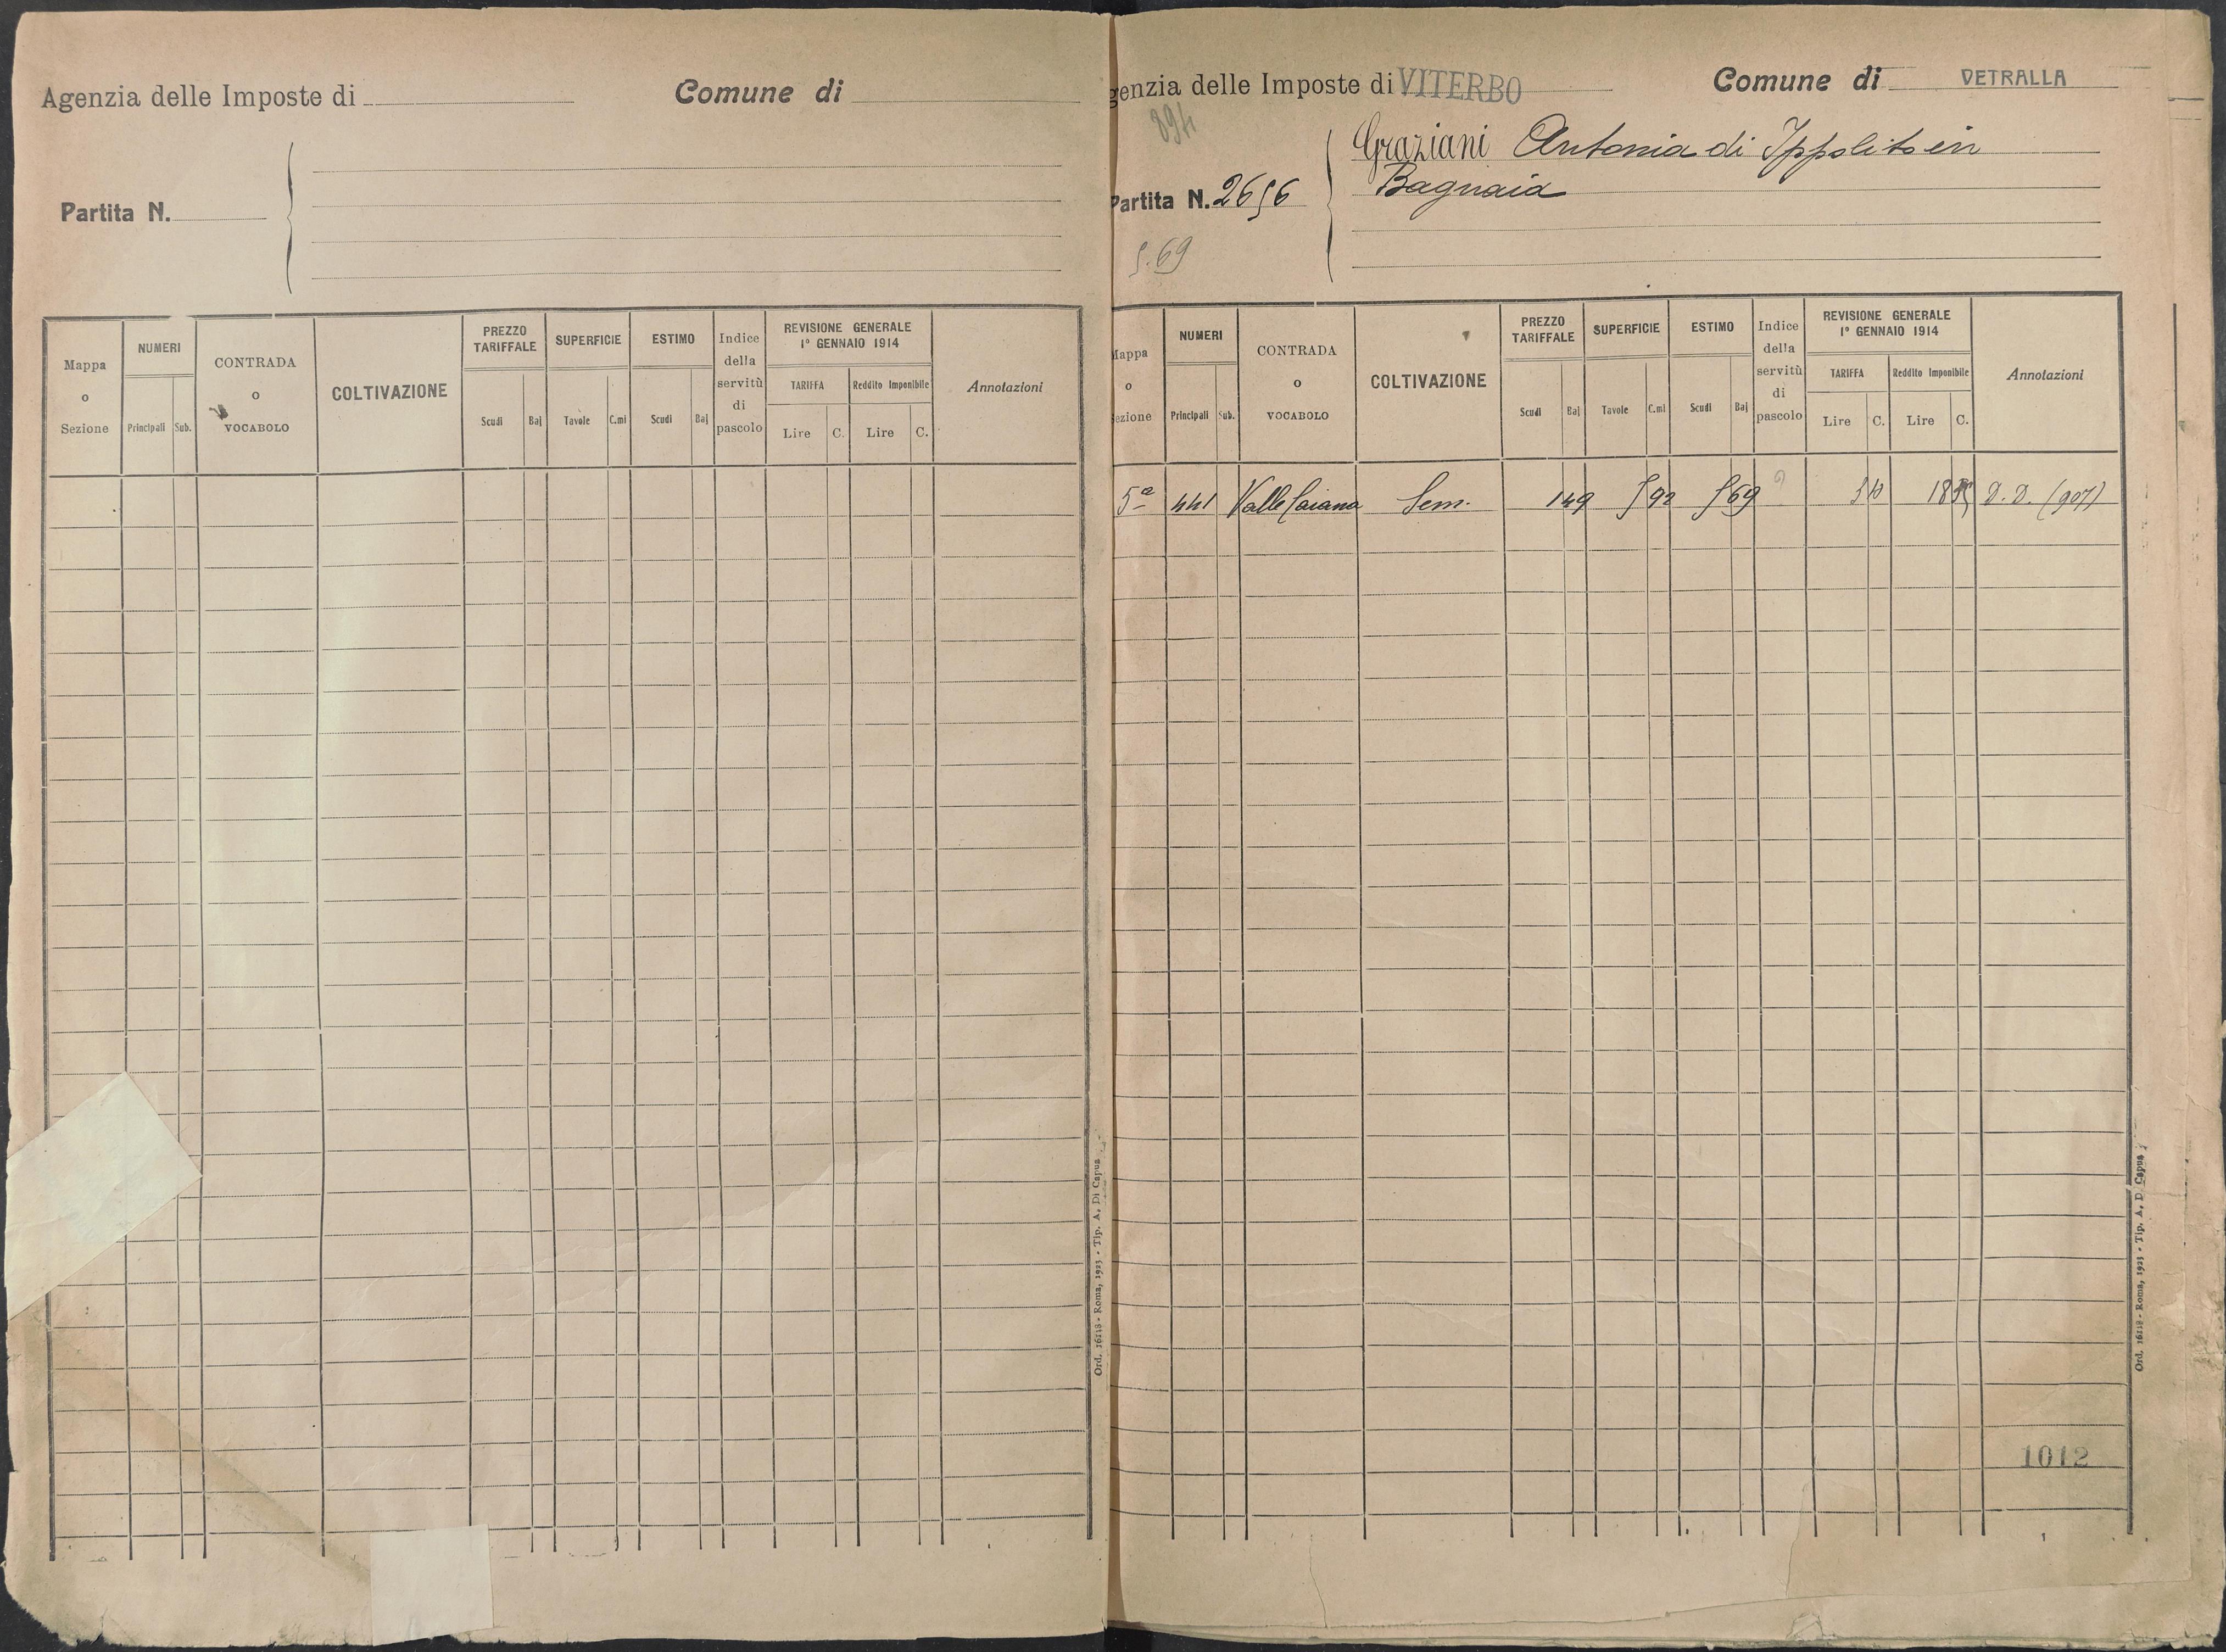 Agenzia delle Imposte di
Comune di
Partita N.
Mappa o Sezione
NUMERI
Principali Sub.
CONTRADA o VOCABOLO
COLTIVAZIONE
PREZZO TARIFFALE
Scudi Baj
SUPERFICIE
Tavole C.mi
ESTIMO
Scudi Baj
Indice della servitù di pascolo
REVISIONE GENERALE
1° GENNAIO 1914
TARIFFA
Lire C.
Reddito Imponibile
Lire C.
Annotazioni
Ord. 16118 - Roma, 1923 - Tip. A. Di Capua
genzia delle Imposte di VITERBO
Comune di VETRALLA
Graziani Antonia di Ippolito in
Bagnaia
Partita N. 2656
5.69
Mappa o Sezione
NUMERI
Principali Sub.
CONTRADA o VOCABOLO
COLTIVAZIONE
PREZZO TARIFFALE
Scudi Baj
SUPERFICIE
Tavole C.mi
ESTIMO
Scudi Baj
Indice della servitù di pascolo
REVISIONE GENERALE
1° GENNAIO 1914
TARIFFA
Lire C.
Reddito Imponibile
Lire C.
Annotazioni
5ª 441 Valle Caiana Sem. 1 49 5 92 5 69 D. D. (907)
1012
Ord. 16118 - Roma, 1923 - Tip. A. D Capua